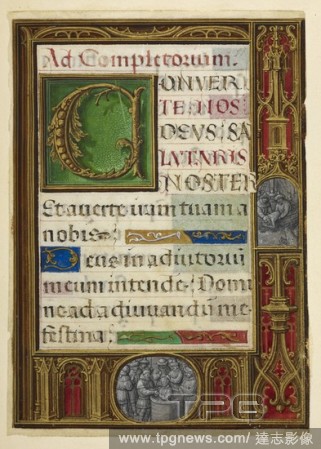 Ad Completorium.
CONVER
TE NOS
DEUS SA
LUTARIS
NOSTER
Et averte iram tuam a
nobis
Deus in adiutoriū
meum intende: Domi
ne ad adiuvandū me
festina:
TPG
www.tpgnews.com/ 達志影像